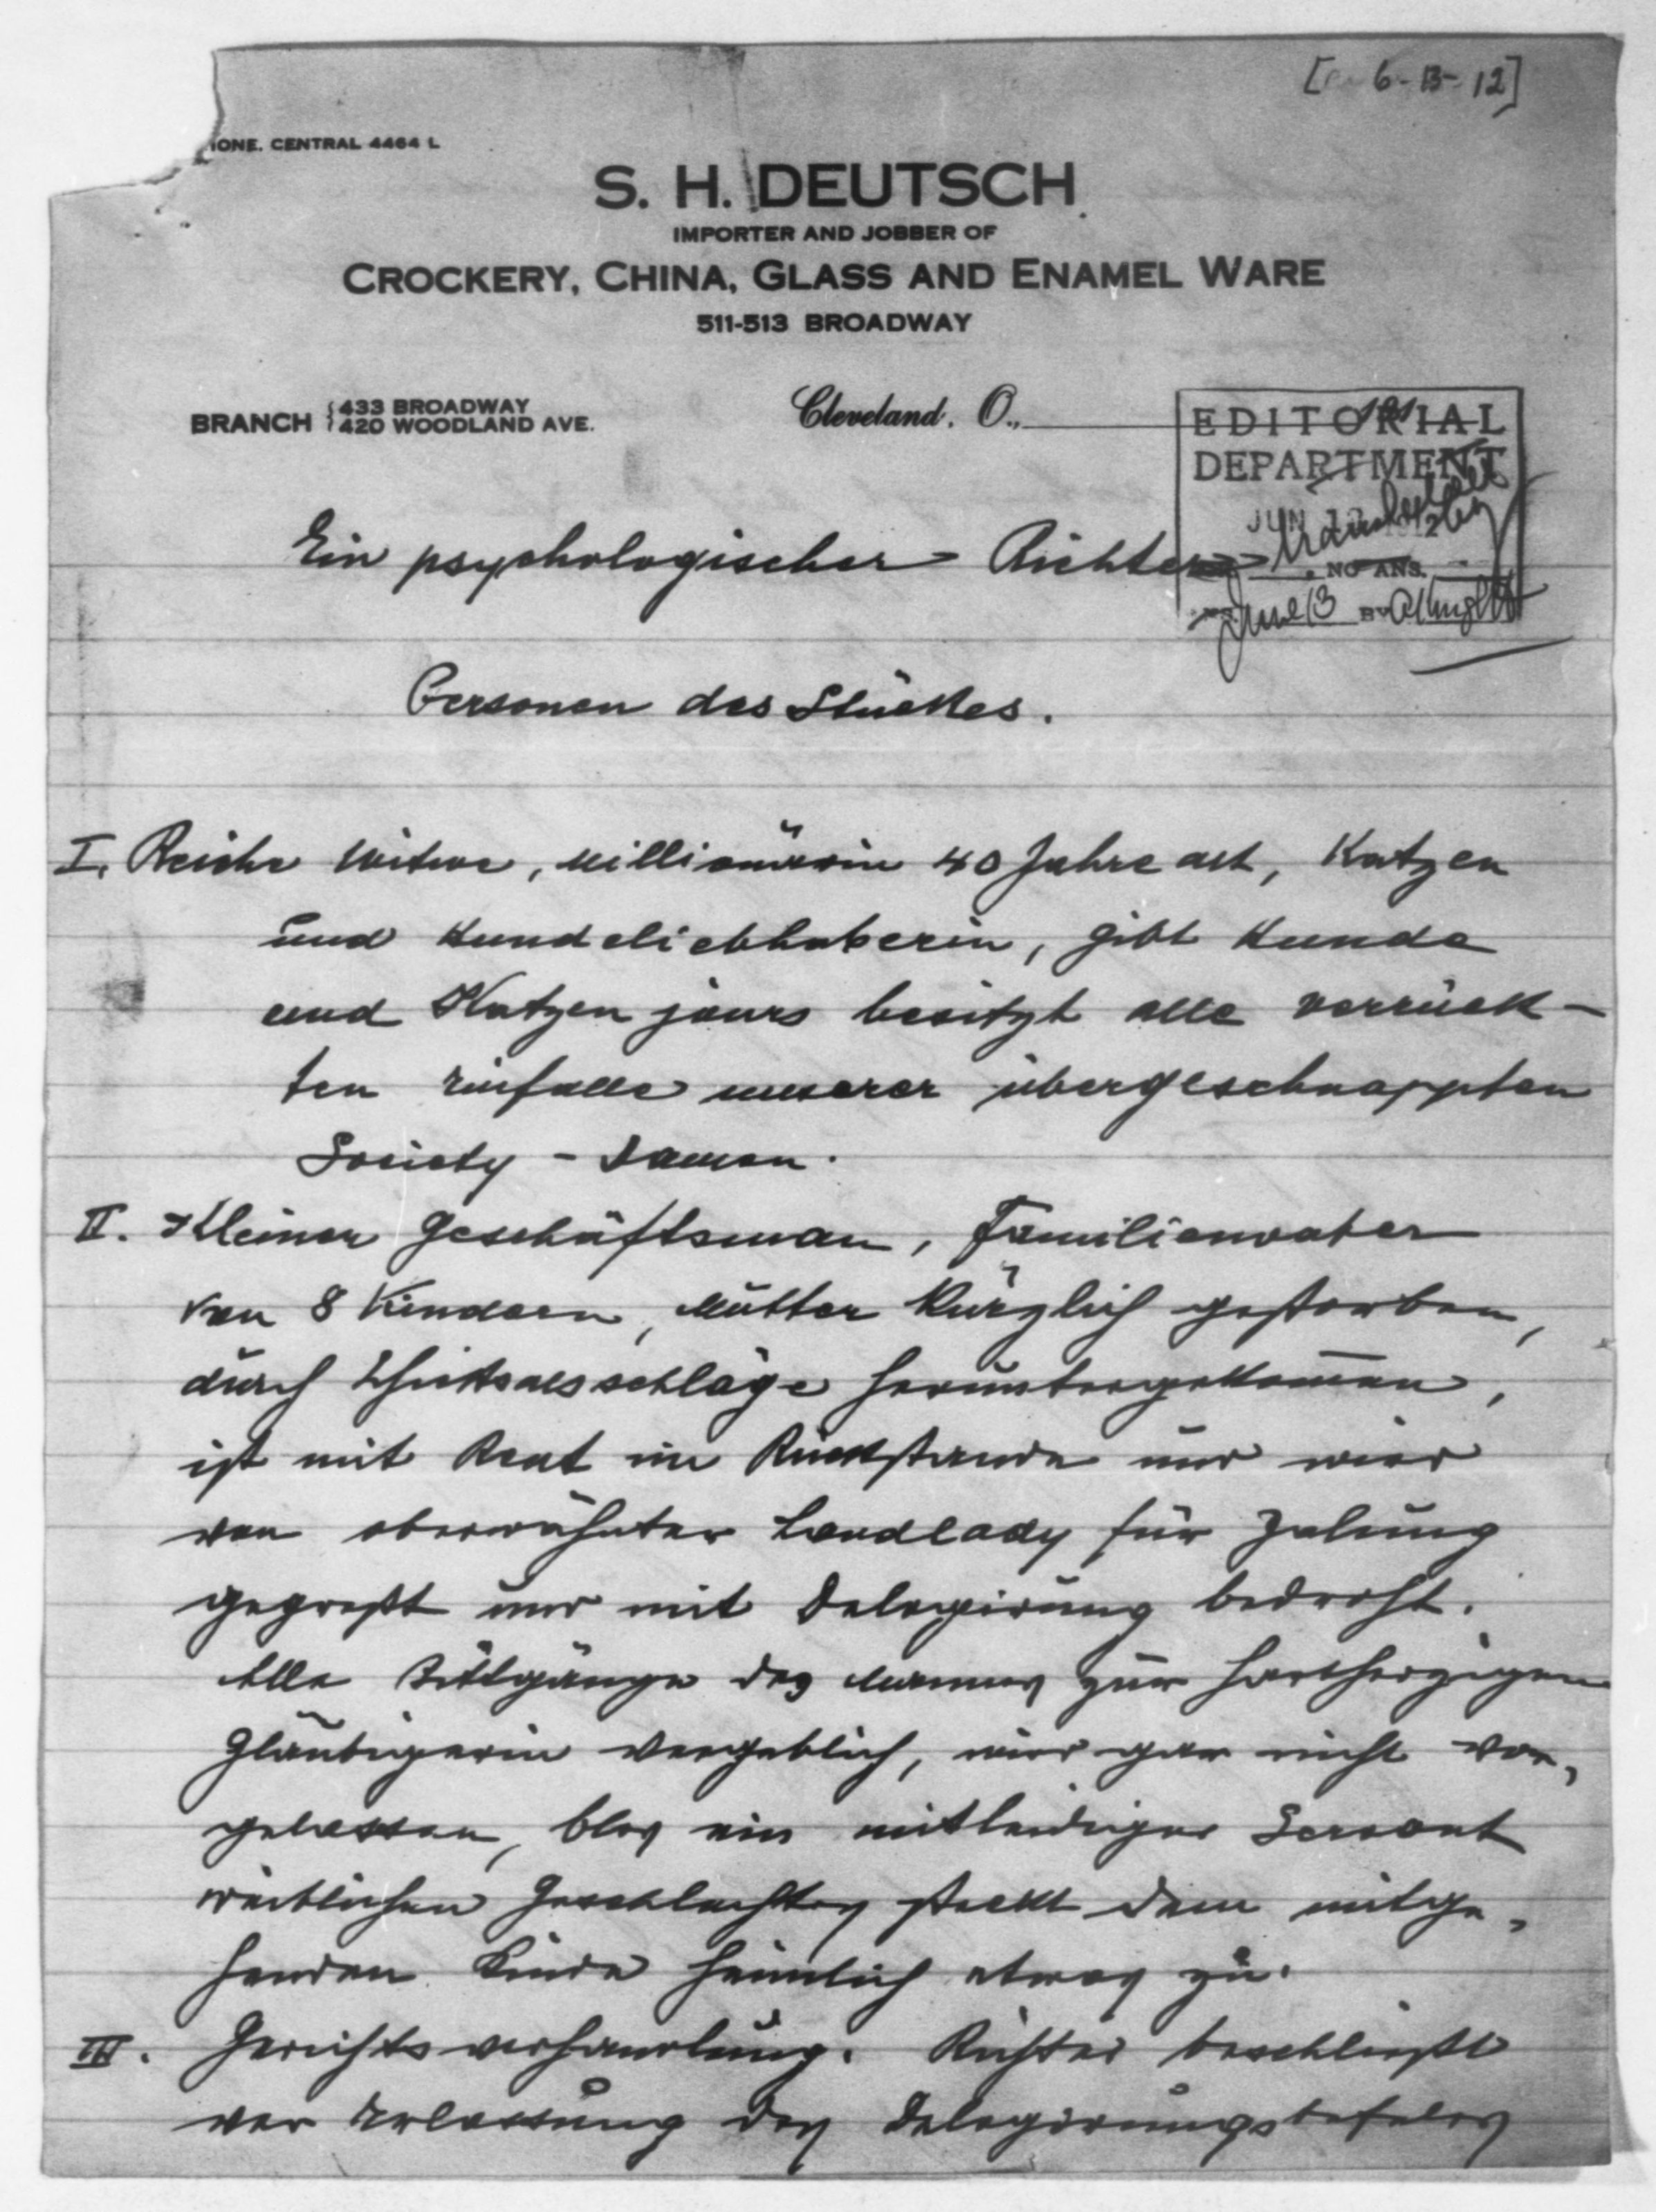 [6-13-12]
IONE. CENTRAL 4464 L
S. H. DEUTSCH
IMPORTER AND JOBBER OF
CROCKERY, CHINA, GLASS AND ENAMEL WARE
511-513 BROADWAY
BRANCH { 433 BROADWAY
420 WOODLAND AVE.
Cleveland, O.,
191
EDITORIAL
DEPARTMENT
JUN
NO ANS.
June 13 BY
Ein psychologischer Richter
Personen des Stückes.
I. Reiche Witwe, Millionärin 40 Jahre alt, Katzen
und Hundeliebhaberin, gibt Hunde
und Katzen jours besitzt alle verrück-
ten Einfälle unserer übergeschnappten
Society - Damen.
II. Kleiner Geschäftsman, Familienvater
von 8 Kindern, Mutter kürzlich gestorben,
durch Schicksalsschläge heruntergekom̅en,
ist mit Rent im Rückstande und wird
von oberwähnter Landlady für Zalung
gepreßt und mit Delogirung bedroht.
Alle Bittgänge des Mannes zur hartherzigen
Gläubigerin vergeblich, wird gar nicht vor-
gelassen, blos ein mitleidiger Servant
weiblichen Geschlechtes steckt dem mitge-
henden Kinde heimlich etwas zu.
III. Gerichtsverhandlung. Richter beschließt
vor Erlassung des Delogirungsbefeles